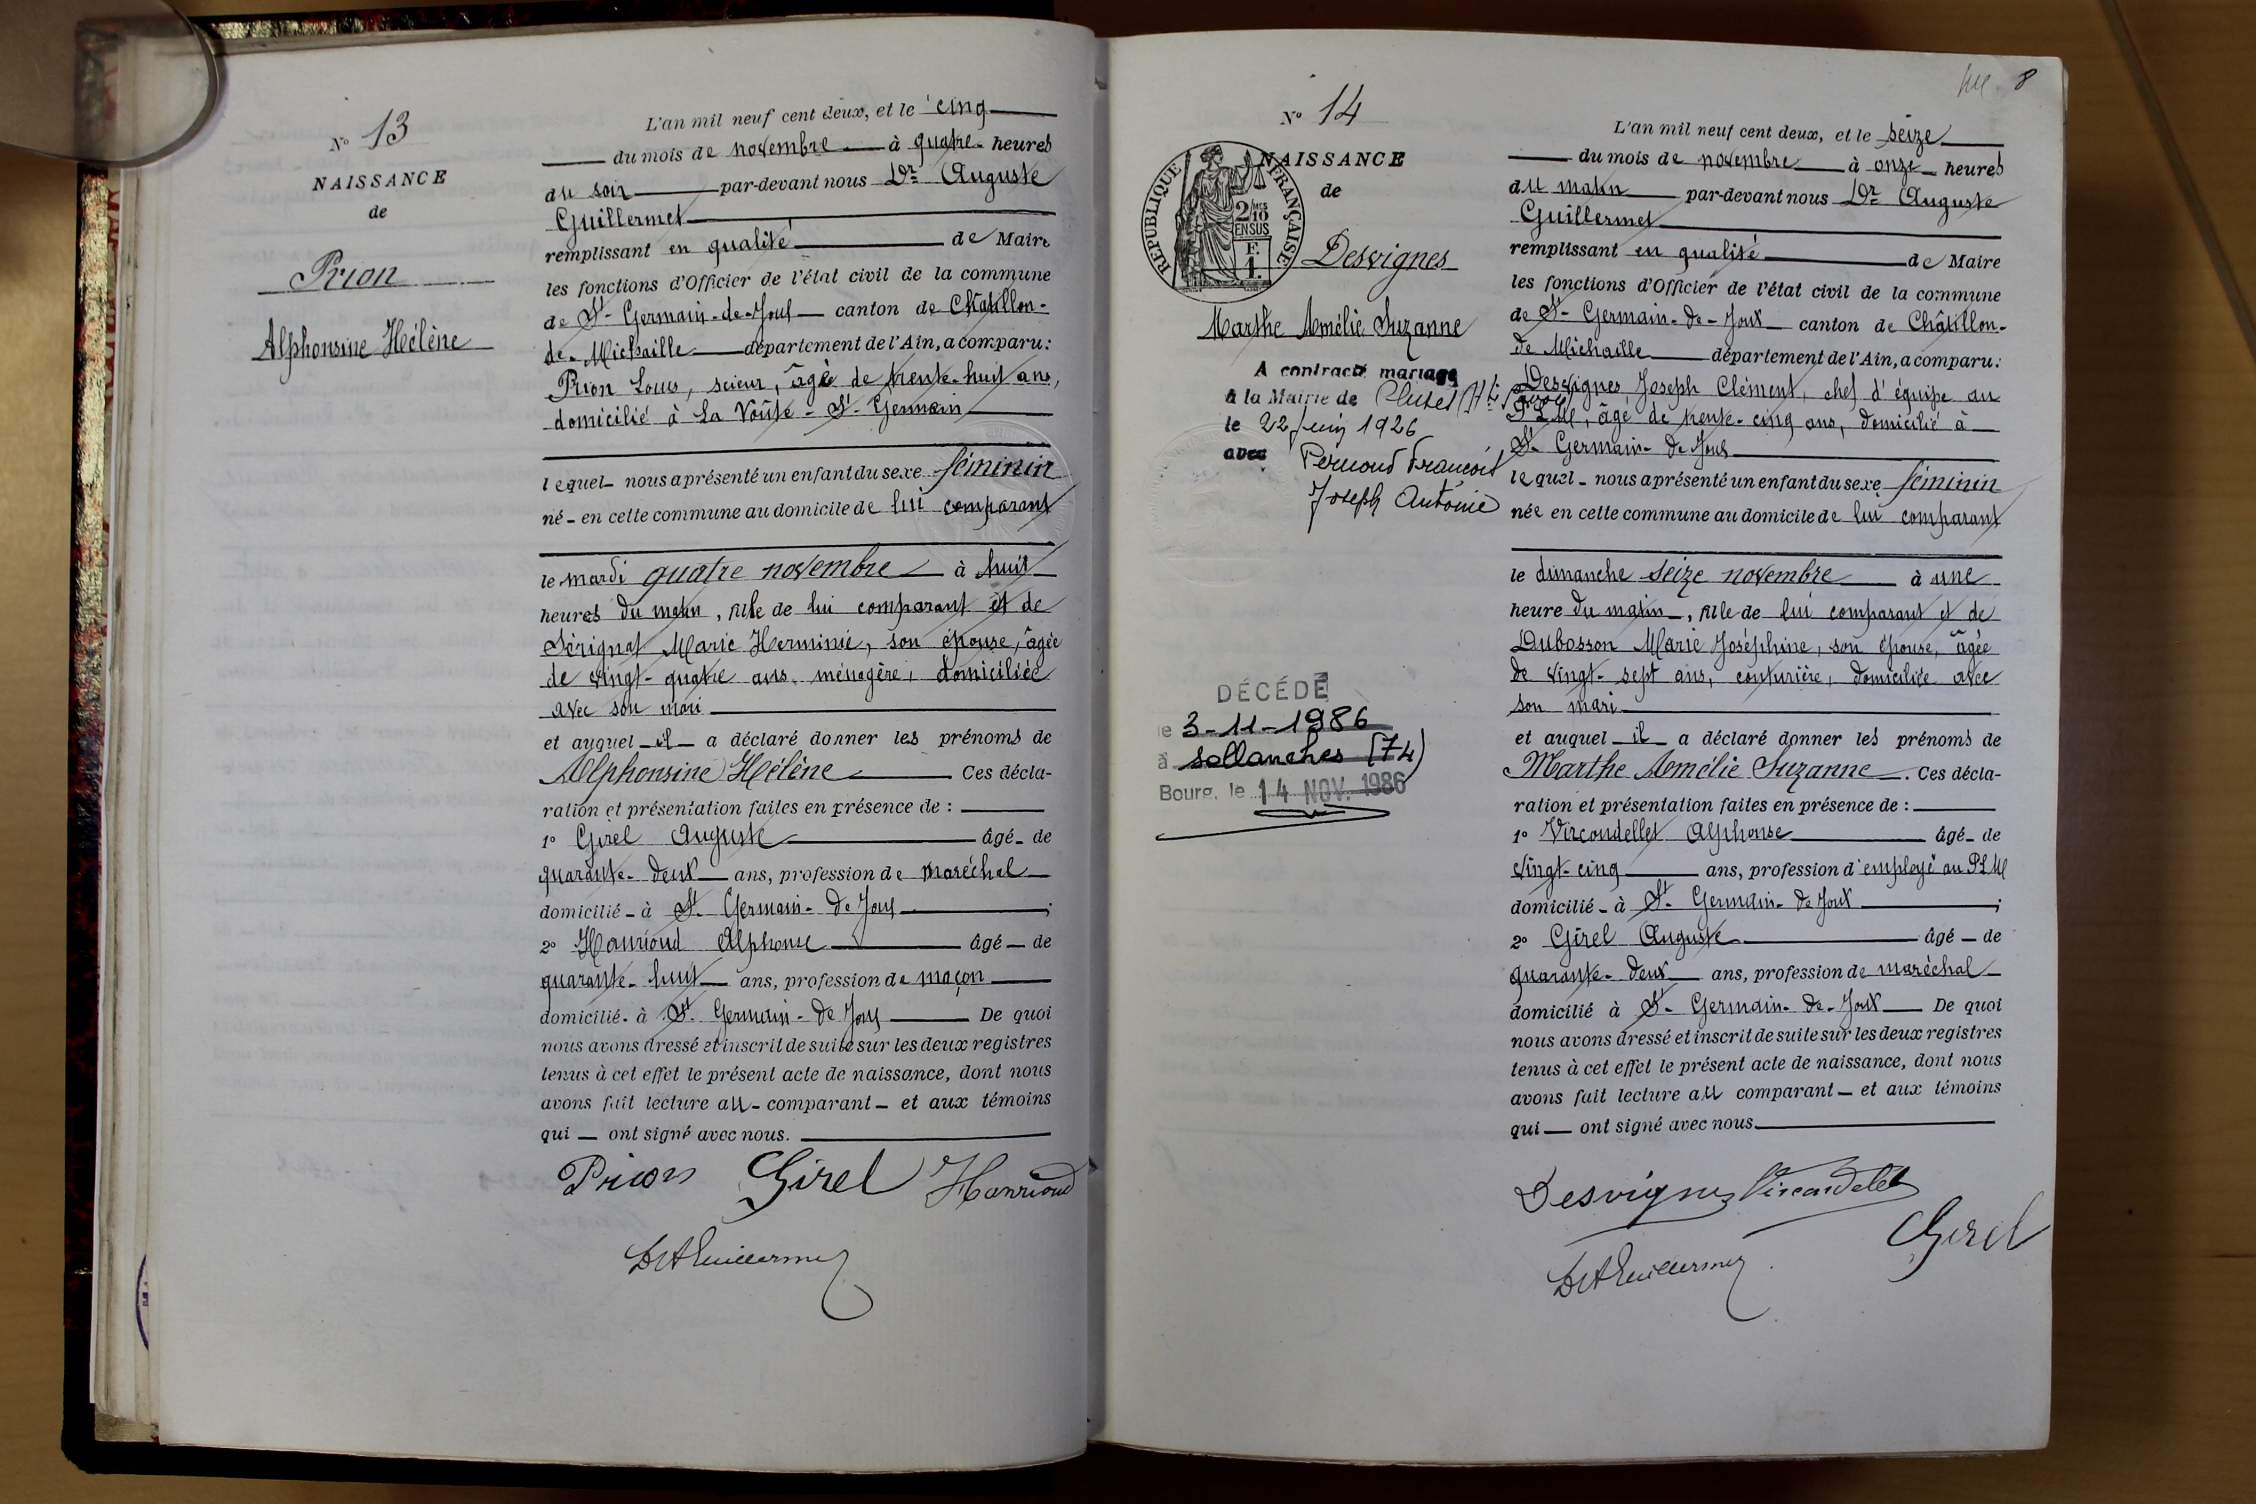 N° 13
NAISSANCE
de
Prion
Alphonsine Hélène
L'an mil neuf cent deux, et le cinq
du mois de novembre à quatre heures
du soir par-devant nous Dr Auguste
Guillermet
remplissant en qualité de Maire
les fonctions d'Officier de l'état civil de la commune
de St-Germain-de-Joux canton de Châtillon-
de-Michaille département de l'Ain, a comparu:
Prion Louis, scieur, âgé de trente-huit ans,
domicilié à La Voûte-St-Germain
lequel nous a présenté un enfant du sexe féminin
né en cette commune au domicile de lui comparant
le mardi quatre novembre à huit
heures du matin, fille de lui comparant et de
Sérignat Marie Herminie, son épouse, âgée
de vingt-quatre ans, ménagère, domiciliée
avec son mari
et auquel il a déclaré donner les prénoms de
Alphonsine Hélène Ces décla-
ration et présentation faites en présence de :
1° Girel Auguste âgé de
quarante-deux ans, profession de maréchal
domicilié à St-Germain-de-Joux ;
2° Hanrioud Alphonse âgé de
quarante-huit ans, profession de maçon
domicilié à St-Germain-de-Joux De quoi
nous avons dressé et inscrit de suite sur les deux registres
tenus à cet effet le présent acte de naissance, dont nous
avons fait lecture au comparant et aux témoins
qui ont signé avec nous.
Prion Girel Hanrioud
Dr A Guillermet
8
N° 14
NAISSANCE
de
RÉPUBLIQUE FRANÇAISE
2/10 MES
EN SUS
F.
1.
Desvignes
Marthe Amélie Suzanne
A contracté mariage
à la Mairie de Cluses (Hte Savoie)
le 22 Juin 1926
avec Pernoud François
Joseph Antoine
DÉCÉDÉ
le 3-11-1986
à Sallanches (74)
Bourg, le 14 NOV. 1986
L'an mil neuf cent deux, et le seize
du mois de novembre à onze heures
du matin par-devant nous Dr Auguste
Guillermet
remplissant en qualité de Maire
les fonctions d'Officier de l'état civil de la commune
de St-Germain-de-Joux canton de Châtillon-
de Michaille département de l'Ain, a comparu:
Desvignes Joseph Clément, chef d'équipe au
P.L.M., âgé de trente-cinq ans, domicilié à
St-Germain-de-Joux
lequel nous a présenté un enfant du sexe féminin
née en cette commune au domicile de lui comparant
le dimanche seize novembre à une
heure du matin, fille de lui comparant et de
Dubosson Marie Joséphine, son épouse, âgée
de vingt-sept ans, couturière, domiciliée avec
son mari
et auquel il a déclaré donner les prénoms de
Marthe Amélie Suzanne. Ces décla-
ration et présentation faites en présence de :
1° Vircondellet Alphonse âgé de
vingt-cinq ans, profession d'employé au PLM
domicilié à St-Germain-de-Joux ;
2° Girel Auguste âgé de
quarante-deux ans, profession de maréchal
domicilié à St-Germain-de-Joux De quoi
nous avons dressé et inscrit de suite sur les deux registres
tenus à cet effet le présent acte de naissance, dont nous
avons fait lecture au comparant et aux témoins
qui ont signé avec nous
Desvignes Vircondelet
Girel
Dr A Guillermet